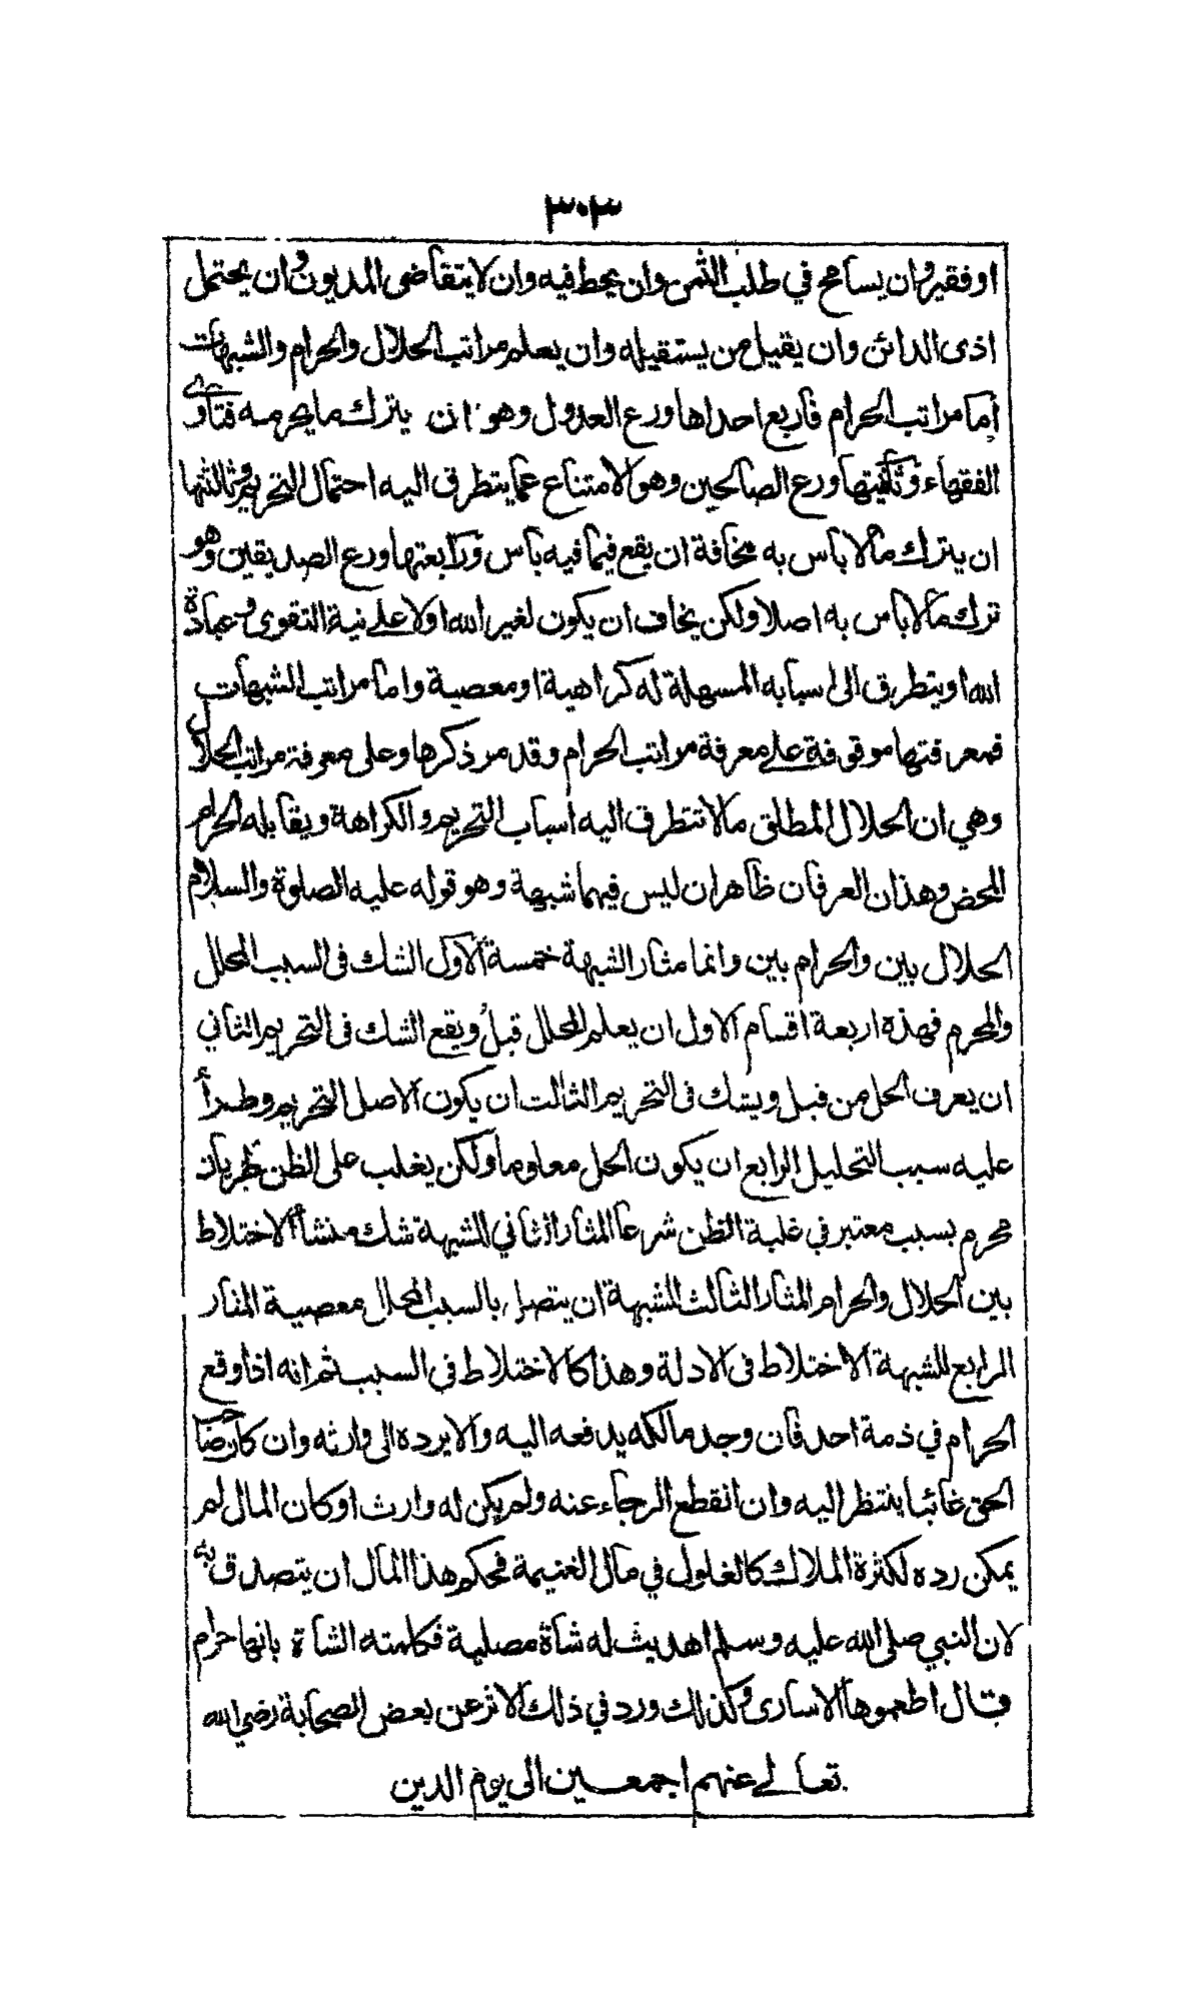 ٣٠٣
او فقير وان يسامح في طلب الثمن وان يحط فيه وان لا يتقاضى المديون وان يحتمل
اذى الدائن وان يقيل من يستقيله وان يعلم مراتب الحلال والحرام والشبهات
اما مراتب الحرام فاربع احداها ورع العدول وهو ان يترك ما يحرمه فتاوى
الفقهاء وثانيتها ورع الصالحين وهو الامتناع عما يتطرق اليه احتمال التحريم وثالثتها
ان يترك مالا باس به مخافة ان يقع فيما فيه باس ورابعتها ورع الصديقين وهو
ترك مالا باس به اصلا ولكن يخاف ان يكون لغير الله اولا على نية التقوى وعبادة
الله او يتطرق الى اسبابه المسهلة له كراهية او معصية واما مراتب الشبهات
فمعرفتها موقوفة على معرفة مراتب الحرام وقد مر ذكرها وعلى معرفة مراتب الحلال
وهي ان الحلال المطلق مالا تتطرق اليه اسباب التحريم والكراهة ويقابله الحرام
المحض وهذان العرفان ظاهران ليس فيهما شبهة وهو قوله عليه الصلوة والسلام
الحلال بين والحرام بين وانما مثار الشبهة خمسة الاول الشك فى السبب المحلل
والمحرم فهذه اربعة اقسام الاول ان يعلم المحلل قبل ويقع الشك فى التحريم الثاني
ان يعرف الحل من قبل ويشك فى التحريم الثالث ان يكون الاصل التحريم وطرأ
عليه سبب التحليل الرابع ان يكون الحل معلوما ولكن يغلب على الظن طريان
محرم بسبب معتبر في غلبة الظن شرعا المثار الثاني للشبهة شك منشأ الاختلاط
بين الحلال والحرام المثار الثالث للشبهة ان يتصل بالسبب المحلل معصية المثار
الرابع للشبهة الاختلاط فى الادلة وهذا كالاختلاط في السبب ثم انه اذا وقع
الحرام في ذمة احد فان وجد مالكه يدفعه اليه والا يرده الى وارثه وان كان
الحق غائبا ينتظر اليه وان انقطع الرجاء عنه ولم يكن له وارث او كان المال لم
يمكن رده لكثرة الملاك كالغلول في مال الغنيمة فحكم هذا المال ان يتصدق به
لان النبي صلى الله عليه وسلم اهديت له شاة مصلية فكلمته الشاة بانها حرام
فقال اطعموها الاسارى وكذلك ورد في ذلك الاثر عن بعض الصحابة رضي الله
تعالى عنهم اجمعين الى يوم الدين